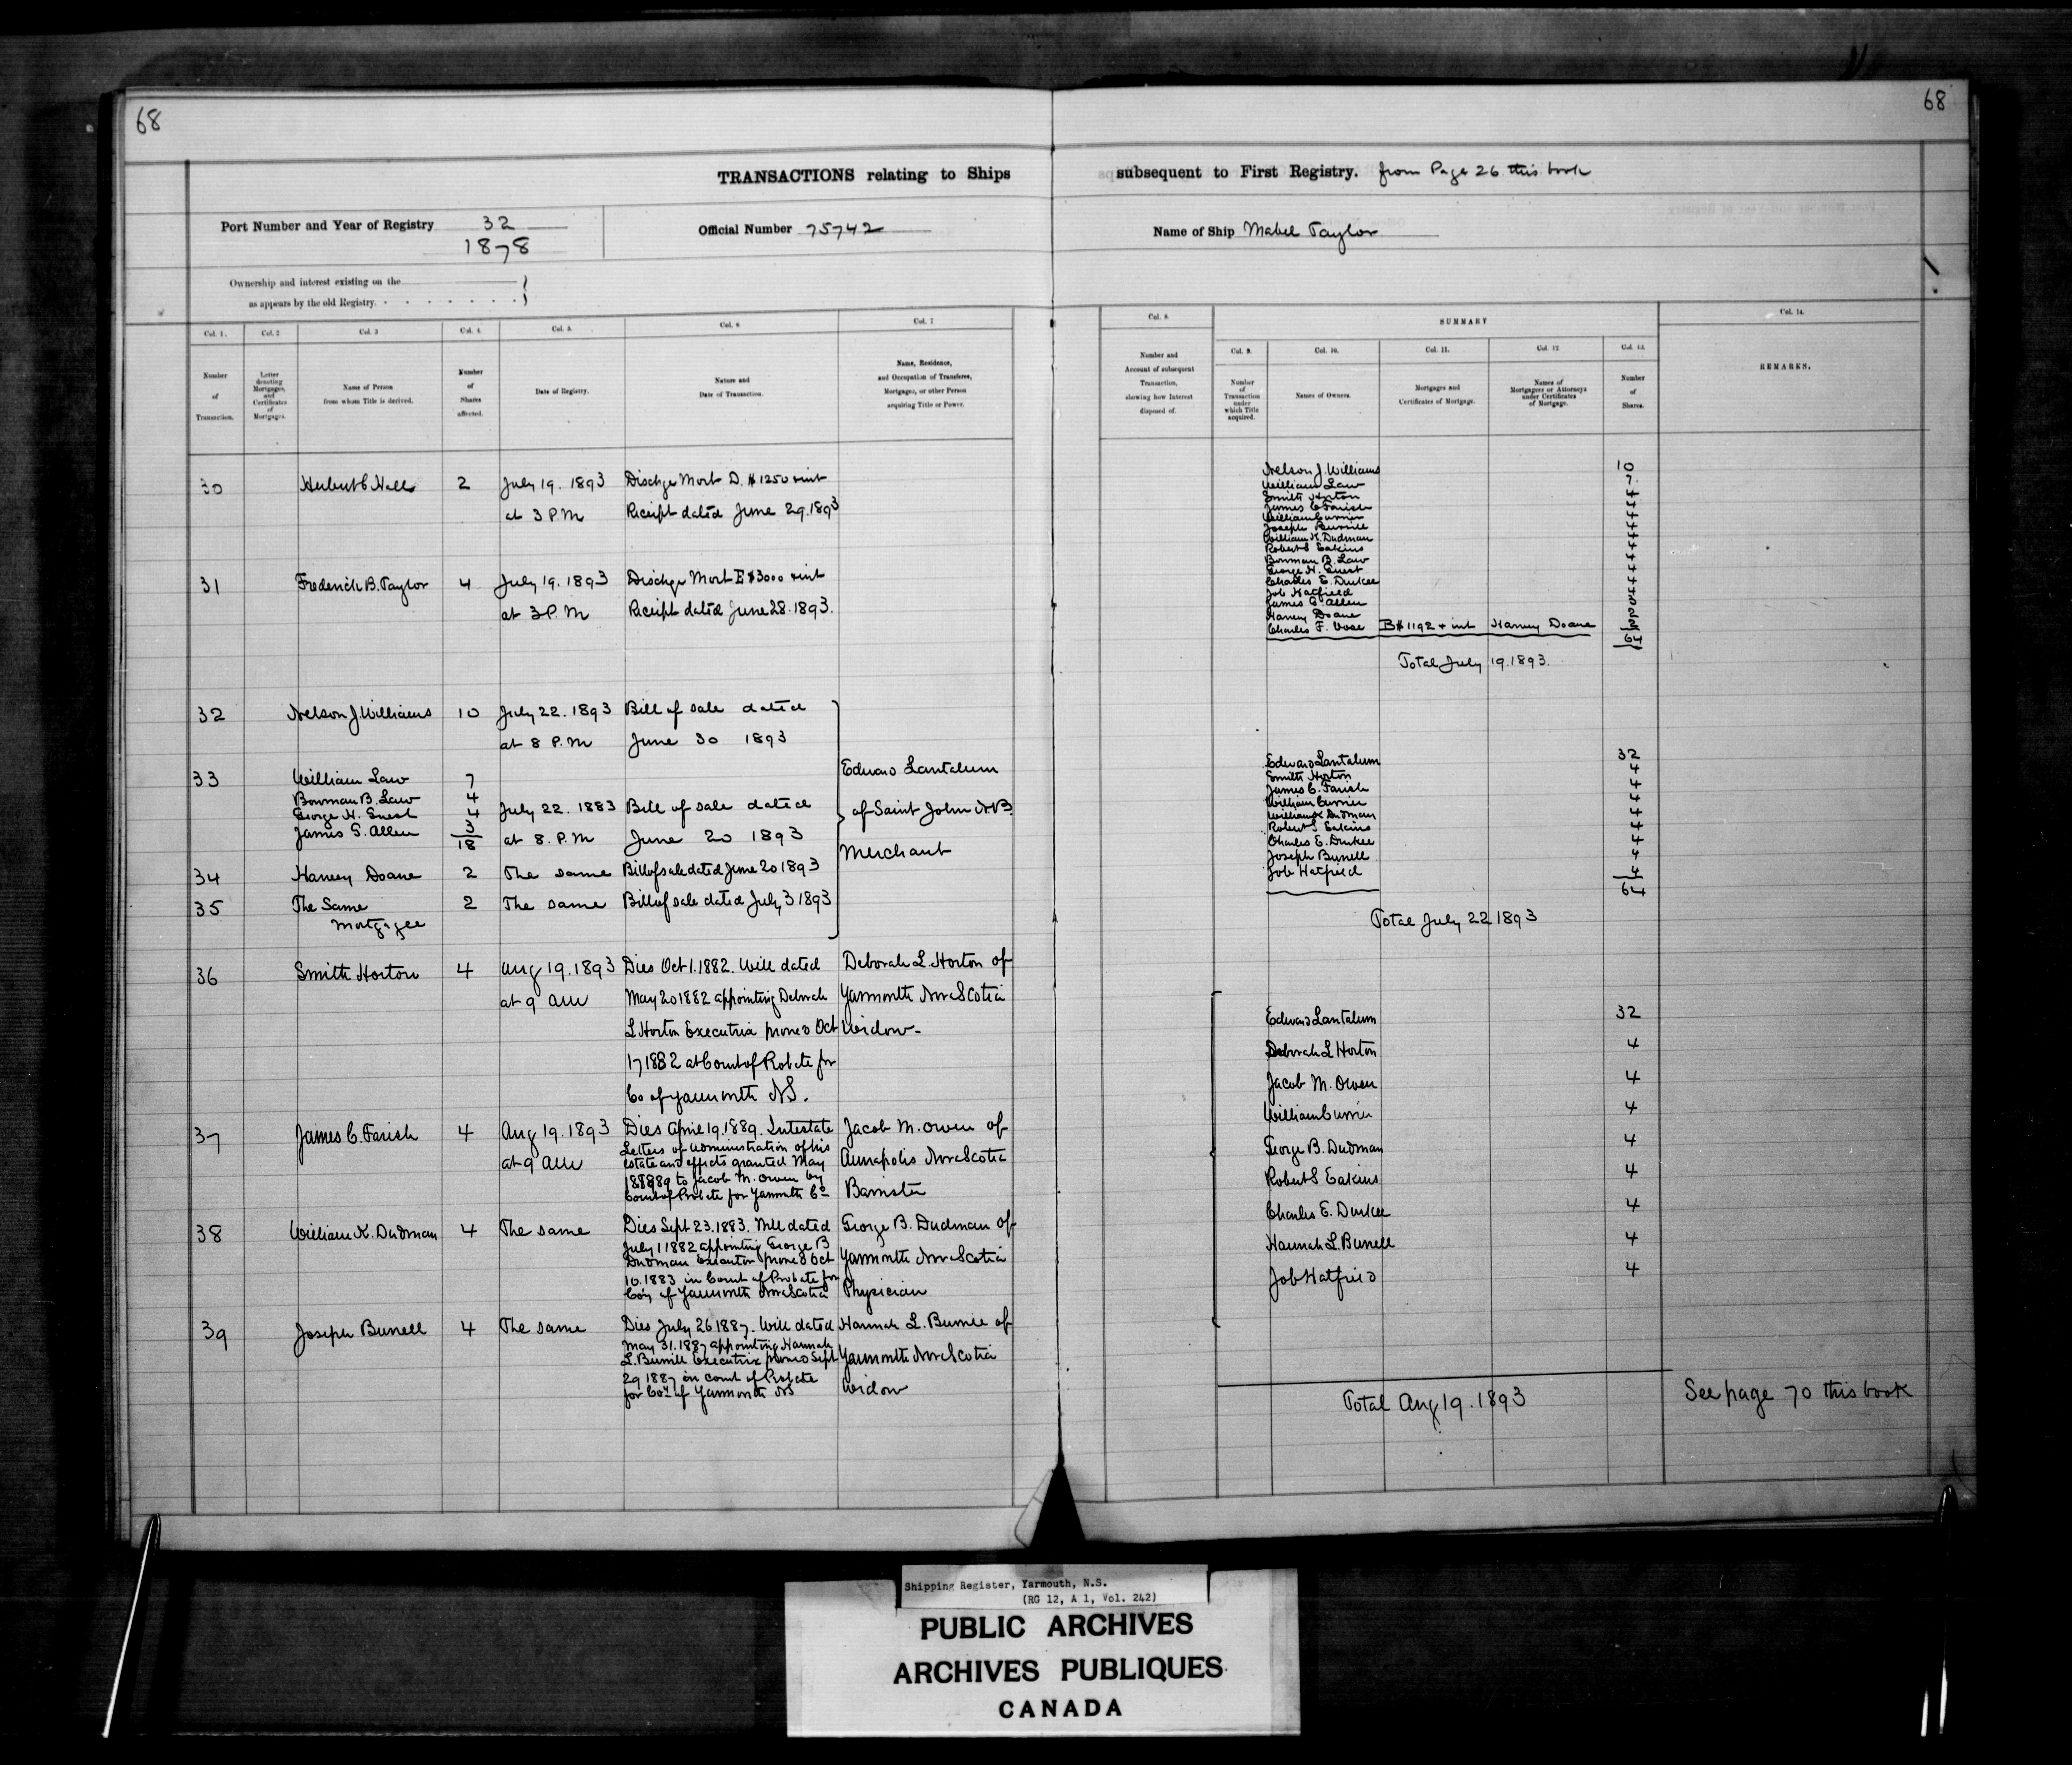 68
68
TRANSACTIONS relating to Ships subsequent to First Registry. from Page 26 this book
Port Number and Year of Registry 32
1878
Official Number 75742
Name of Ship Mabel Taylor
Ownership and interest existing on the
as appears by the old Registry.
Col. 1.
Number
of
Transaction.
Col. 2
Letter
denoting
Mortgages,
and
Certificates
of
Mortgages.
Col. 3
Name of Person
from whom Title is derived.
Col. 4.
Number
of
Shares
affected.
Col. 5.
Date of Registry.
Col. 6
Nature and
Date of Transaction.
Col. 7
Name, Residence,
and Occupation of Transferee,
Mortgagee, or other Person
acquiring Title or Power.
Col. 8.
Number and
Account of subsequent
Transaction,
showing how Interest
disposed of.
SUMMARY
Col. 9.
Number
of
Transaction
under
which Title
acquired.
Col. 10.
Names of Owners.
Col. 11.
Mortgages and
Certificates of Mortgage.
Col. 12
Names of
Mortgagees or Attorneys
under Certificates
of Mortgage.
Col. 13.
Number
of
Shares.
Col. 14.
REMARKS.
30 Hubert C Hall 2 July 19. 1893 Dischge Mort D. $1250 + int
at 3 P.M Receipt dated June 29. 1893
31 Frederick B. Taylor 4 July 19. 1893 Dischge Mort E $3000 + int
at 3 P.M Receipt dated June 28. 1893.
32 Nelson J. Williams 10 July 22. 1893 Bill of sale dated
at 8 P.M June 30 1893
33 William Law 7
Bowman B. Law 4
George H. Guest 4 July 22. 1883 Bill of sale dated
James G. Allen 3 at 8. P.M June 20 1893
18
34 Harvey Doane 2 The same Bill of sale dated June 20 1893
35 The Same 2 The same Bill of sale dated July 3 1893
Mortgagee
Edward Lantalum
of Saint John N.B.
Merchant
36 Smith Horton 4 Aug 19. 1893 Dies Oct 1. 1882. Will dated Deborah L. Horton of
at 9 am May 20 1882 appointing Deborah Yarmouth Nova Scotia
L Horton Executrix proved Oct Widow-
17 1882 at Court of Probate for
Co of Yarmouth NS.
37 James C. Farish 4 Aug 19. 1893 Dies April 19. 1889. Intestate Jacob M. Owen of
at 9 am Letters of administration of his Annapolis Nova Scotia
estate and effects granted May
to Jacob M. Owen by
Court of Probate for Yarmouth Co Barrister
38 William K. Dudman 4 The same Dies Sept 23. 1883. Will dated George B. Dudman of
July 1 1882 appointing George B
Dudman Executor proved Oct Yarmouth Nova Scotia
10. 1883 in Court of Probate for
Coy of Yarmouth Nova Scotia Physician
39 Joseph Burrell 4 The same Dies July 26 1887. Will dated Hannah L. Burrill of
May 31. 1887 appointing Hannah
L. Burrill Executrix proved Sept Yarmouth Nova Scotia
29 1887 in Court of Probate
for Coy of Yarmouth NS Widow
Nelson J. Williams 10
William Law 7
Smith Horton 4
James C Farish 4
William Currier 4
Joseph Burrill 4
William K. Dudman 4
Robert S Eakins 4
Bowman B. Law 4
George H. Guest 4
Charles E. Durkee 4
Job Hatfield 4
James G. Allen 3
Harvey Doane 2
Charles F. Vose B $1192 + int Harvey Doane 2
64
Total July 19. 1893.
Edward Lantalum 32
Smith Horton 4
James C. Farish 4
William Currier 4
William K Dudman 4
Robert S Eakins 4
Charles E. Durkee 4
Joseph Burrell 4
Job Hatfield 4
64
Total July 22 1893
Edward Lantalum 32
Deborah L Horton 4
Jacob M. Owen 4
William Currier 4
George B. Dudman 4
Robert S Eakins 4
Charles E. Durkee 4
Hannah L. Burrell 4
Job Hatfield 4
Total Aug 19. 1893
See page 70 this book
Shipping Register, Yarmouth, N.S.
(RG 12, A 1, Vol. 242)
PUBLIC ARCHIVES
ARCHIVES PUBLIQUES
CANADA